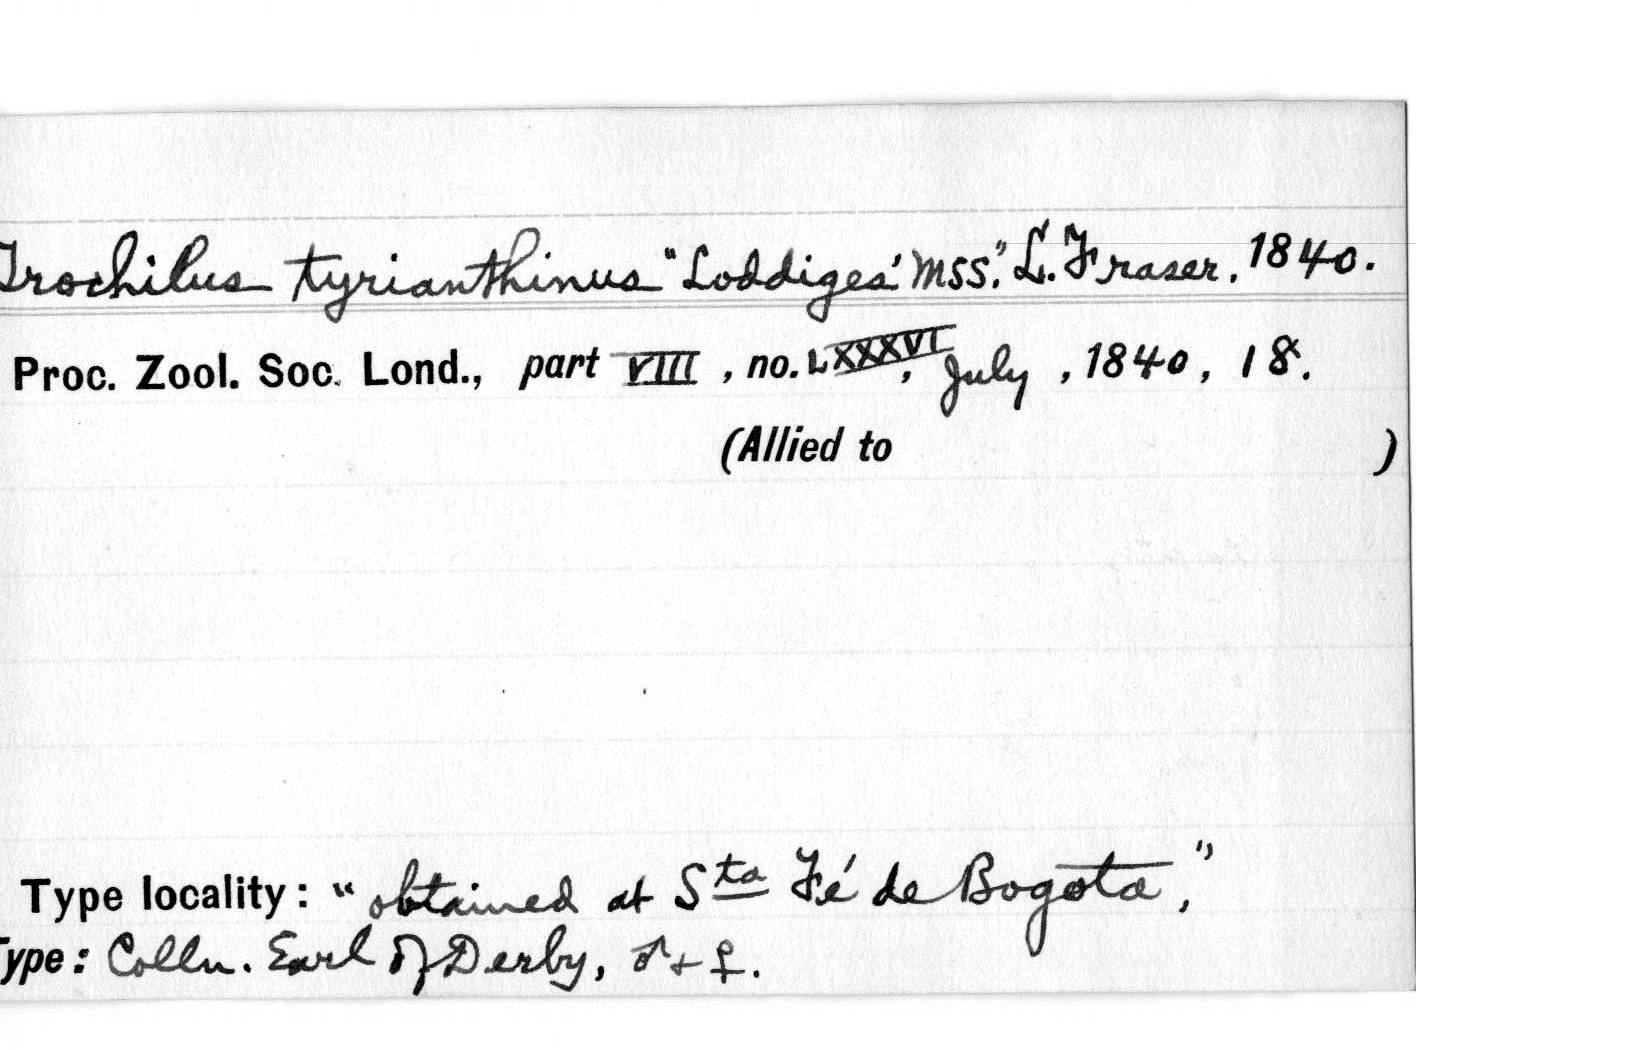 Trochilus tyrianthinus "Loddiges' MSS." L. Fraser, 1840.
Proc. Zool. Soc. Lond., part VIII, no. LXXXVI, July, 1840, 18.
(Allied to )
Type locality: "obtained at Sta Fé de Bogota,"
Type: Colln. Earl of Derby, ♂ + ♀.